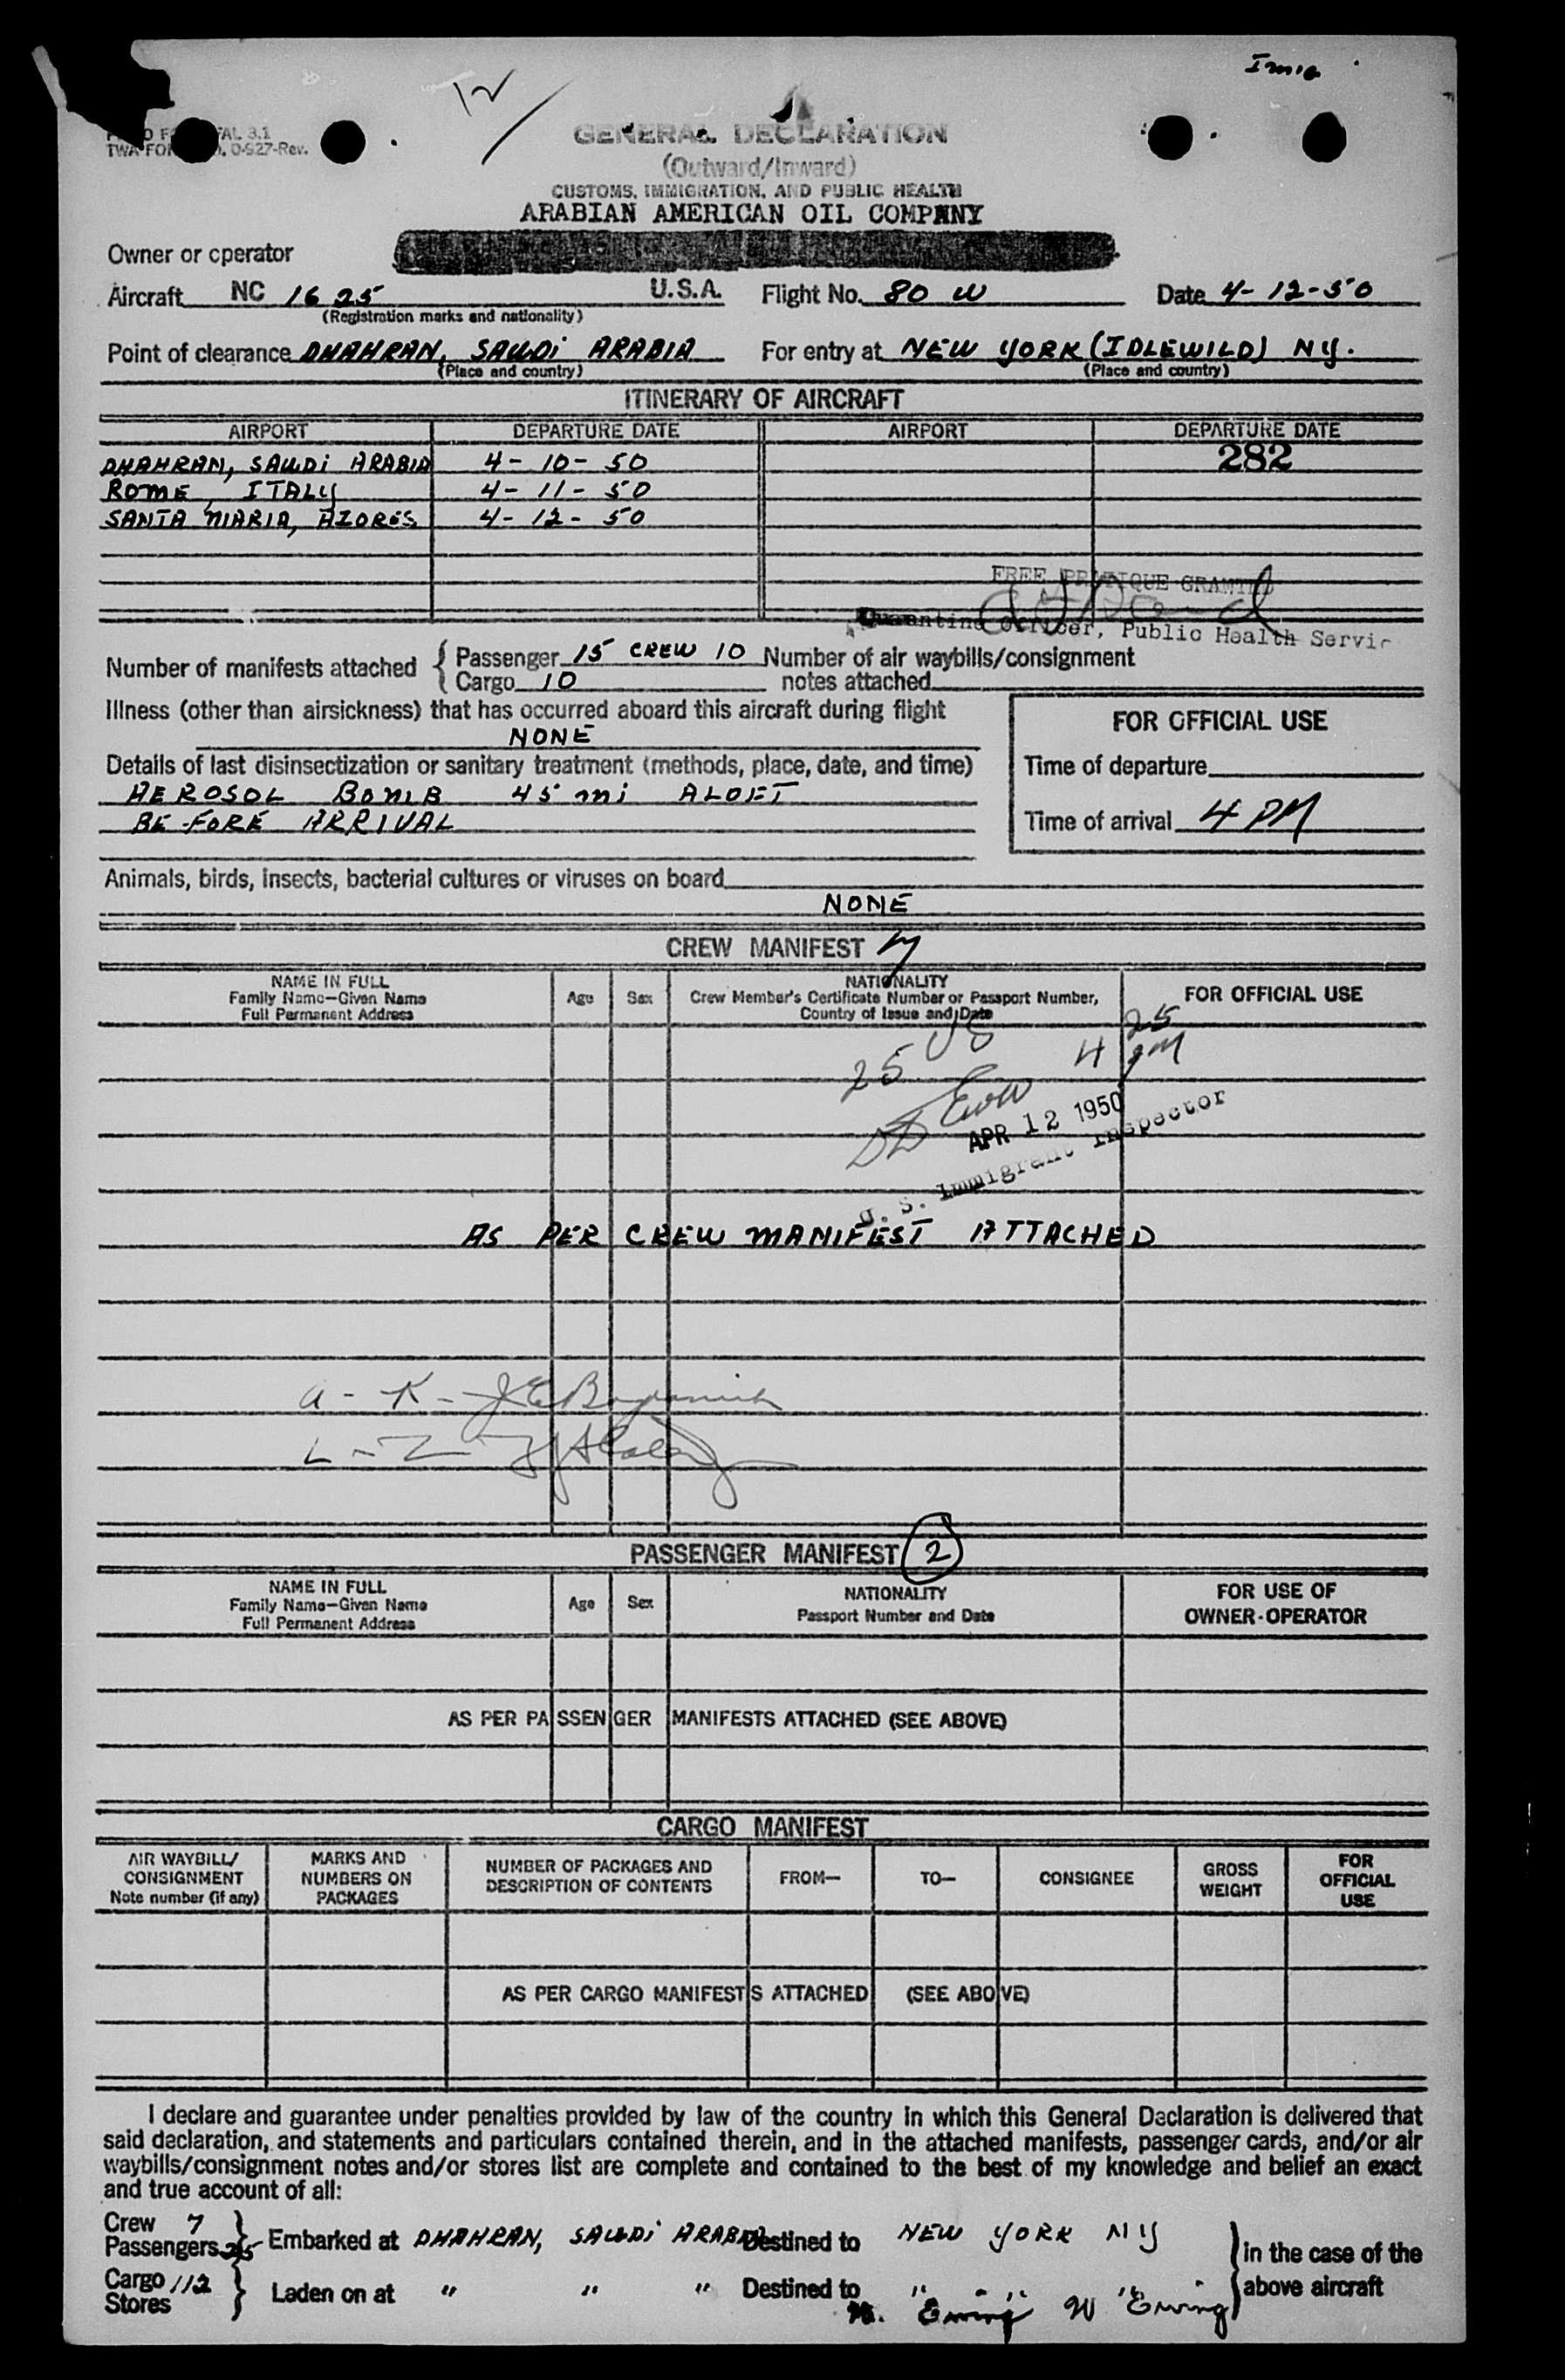 Imig
12
AL 3.1
TWA FOR 0-927-Rev.
GENERAL DECLARATION
(Outward/Inward)
CUSTOMS, IMMIGRATION, AND PUBLIC HEALTH
ARABIAN AMERICAN OIL COMPANY
Owner or operator
Aircraft NC 1625 U.S.A. Flight No. 80 W Date 4-12-50
(Registration marks and nationality)
Point of clearance DHAHRAN, SAUDi ARABIA For entry at NEW YORK (IDLEWILD) NY.
(Place and country) (Place and country)
ITINERARY OF AIRCRAFT
AIRPORT DEPARTURE DATE AIRPORT DEPARTURE DATE
DHAHRAN, SAUDi ARABIA 4-10-50 282
ROME, ITALY 4-11-50
SANTA MARIA, AZORES 4-12-50
FREE PRATIQUE GRANTED
Quarantine Officer, Public Health Servic
Number of manifests attached { Passenger 15 CREW 10 Number of air waybills/consignment
Cargo 10 notes attached
Illness (other than airsickness) that has occurred aboard this aircraft during flight
NONE
FOR OFFICIAL USE
Details of last disinsectization or sanitary treatment (methods, place, date, and time)
Time of departure
AEROSOL BOMB 45 mi ALOFT
BE-FORE ARRIVAL
Time of arrival 4 PM
Animals, birds, insects, bacterial cultures or viruses on board
NONE
CREW MANIFEST 7
NAME IN FULL Age Sex NATIONALITY FOR OFFICIAL USE
Family Name—Given Name Crew Member's Certificate Number or Passport Number,
Full Permanent Address Country of Issue and Date
25
25 US 4 PM
APR 12 1950
U. S. Immigrant Inspector
AS PER CREW MANIFEST ATTACHED
a - K -
L - Z
PASSENGER MANIFEST 2
NAME IN FULL Age Sex NATIONALITY FOR USE OF
Family Name—Given Name Passport Number and Date OWNER-OPERATOR
Full Permanent Address
AS PER PASSENGER MANIFESTS ATTACHED (SEE ABOVE)
CARGO MANIFEST
AIR WAYBILL/ CONSIGNMENT Note number (if any) MARKS AND NUMBERS ON PACKAGES NUMBER OF PACKAGES AND DESCRIPTION OF CONTENTS FROM— TO— CONSIGNEE GROSS WEIGHT FOR OFFICIAL USE
AS PER CARGO MANIFESTS ATTACHED (SEE ABOVE)
I declare and guarantee under penalties provided by law of the country in which this General Declaration is delivered that
said declaration, and statements and particulars contained therein, and in the attached manifests, passenger cards, and/or air
waybills/consignment notes and/or stores list are complete and contained to the best of my knowledge and belief an exact
and true account of all:
Crew 7
Passengers 25 } Embarked at DHAHRAN, SAUDi ARABIA Destined to NEW YORK NY } in the case of the
Cargo 112
Stores } Laden on at " " " Destined to " " " above aircraft
W. Ewing W Ewing